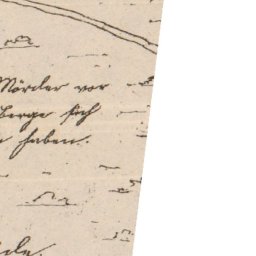 Mörder vor
berge sich
haben.